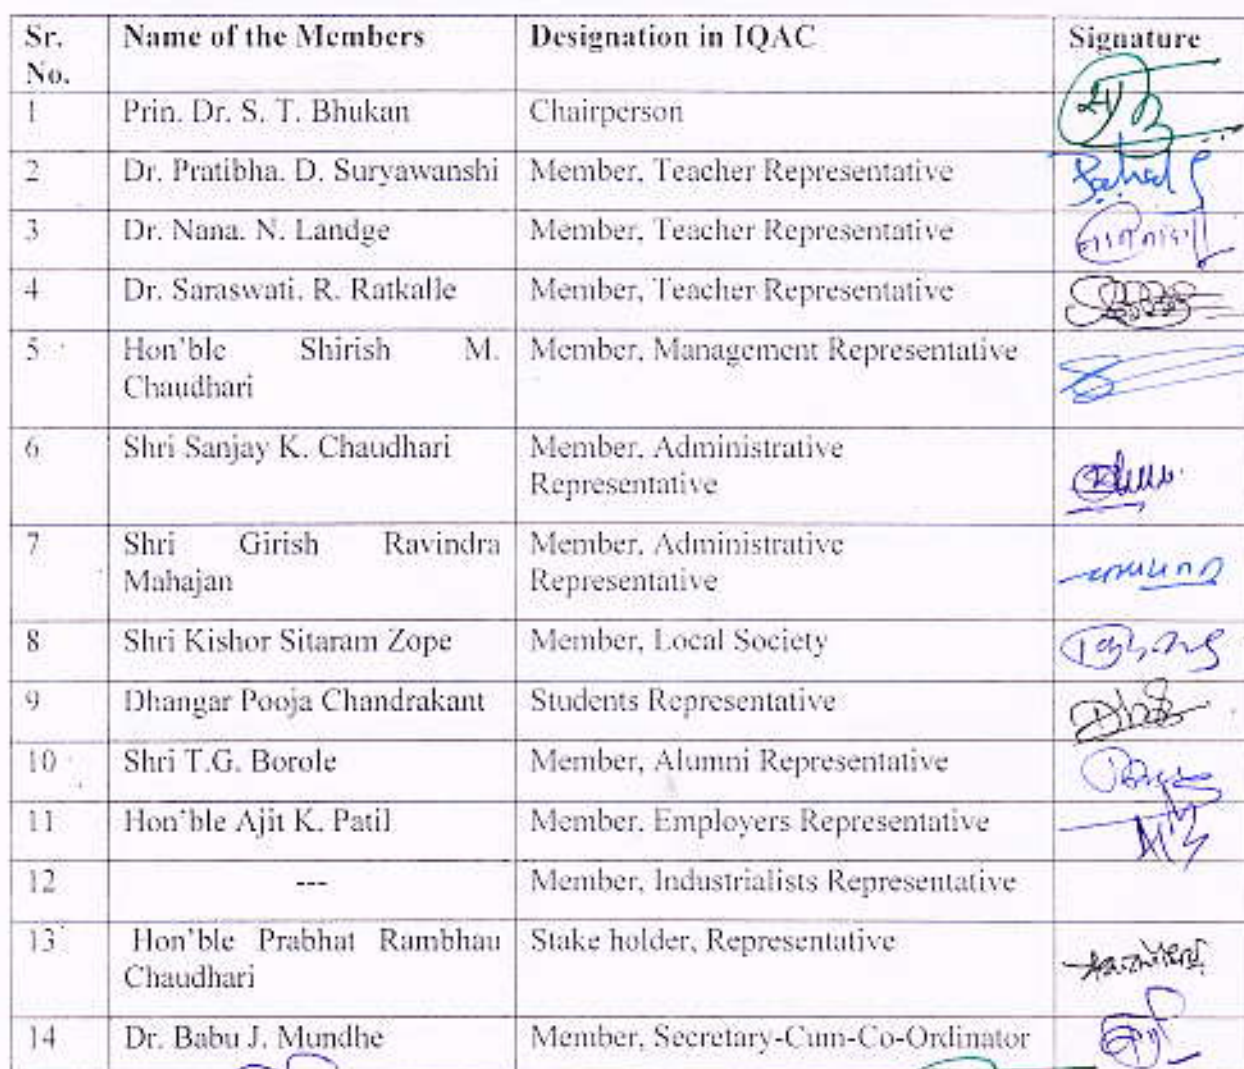 Sr. No. Name of the Members Designation in IQAC Signature
1 Prin. Dr. S. T. Bhukan Chairperson
2 Dr. Pratibha. D. Suryawanshi Member, Teacher Representative
3 Dr. Nana. N. Landge Member, Teacher Representative
4 Dr. Saraswati. R. Ratkalle Member, Teacher Representative
5 Hon'ble Shirish M. Chaudhari Member, Management Representative
6 Shri Sanjay K. Chaudhari Member, Administrative Representative
7 Shri Girish Ravindra Mahajan Member, Administrative Representative
8 Shri Kishor Sitaram Zope Member, Local Society
9 Dhangar Pooja Chandrakant Students Representative
10 Shri T.G. Borole Member, Alumni Representative
11 Hon'ble Ajit K. Patil Member, Employers Representative
12 --- Member, Industrialists Representative
13 Hon'ble Prabhat Rambhau Chaudhari Stake holder, Representative
14 Dr. Babu J. Mundhe Member, Secretary-Cum-Co-Ordinator